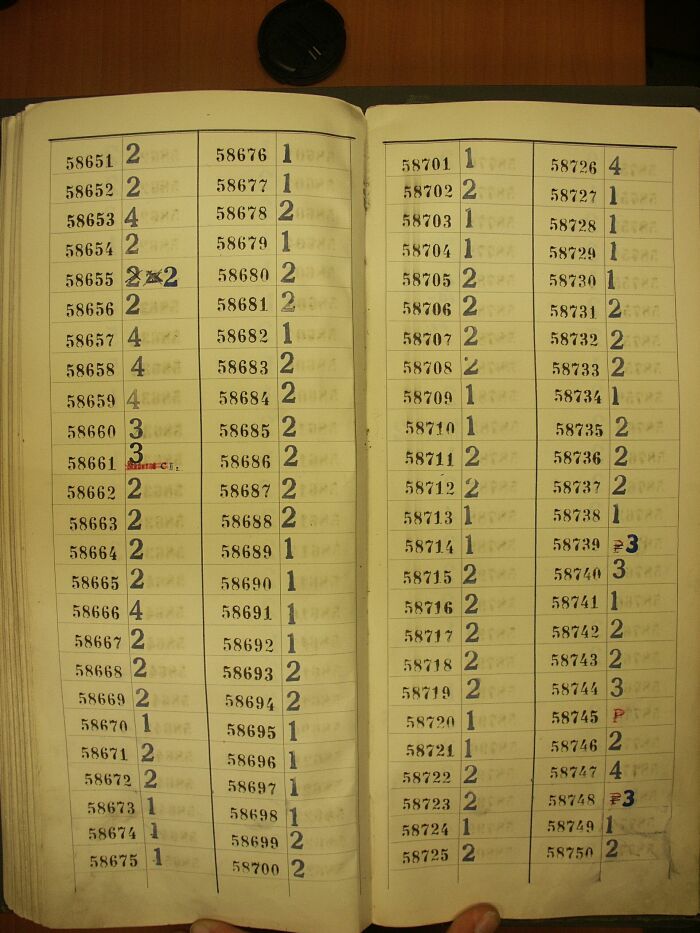 58651 2
58652 2
58653 4
58654 2
58655 2 2
58656 2
58657 4
58658 4
58659 4
58660 3
58661 3 CI.
58662 2
58663 2
58664 2
58665 2
58666 4
58667 2
58668 2
58669 2
58670 1
58671 2
58672 2
58673 1
58674 1
58675 1
58676 1
58677 1
58678 2
58679 1
58680 2
58681 2
58682 1
58683 2
58684 2
58685 2
58686 2
58687 2
58688 2
58689 1
58690 1
58691 1
58692 1
58693 2
58694 2
58695 1
58696 1
58697 1
58698 1
58699 2
58700 2
58701 1
58702 2
58703 1
58704 1
58705 2
58706 2
58707 2
58708 2
58709 1
58710 1
58711 2
58712 2
58713 1
58714 1
58715 2
58716 2
58717 2
58718 2
58719 2
58720 1
58721 1
58722 2
58723 2
58724 1
58725 2
58726 4
58727 1
58728 1
58729 1
58730 1
58731 2
58732 2
58733 2
58734 1
58735 2
58736 2
58737 2
58738 1
58739 P 3
58740 3
58741 1
58742 2
58743 2
58744 3
58745 P
58746 2
58747 4
58748 P 3
58749 1
58750 2